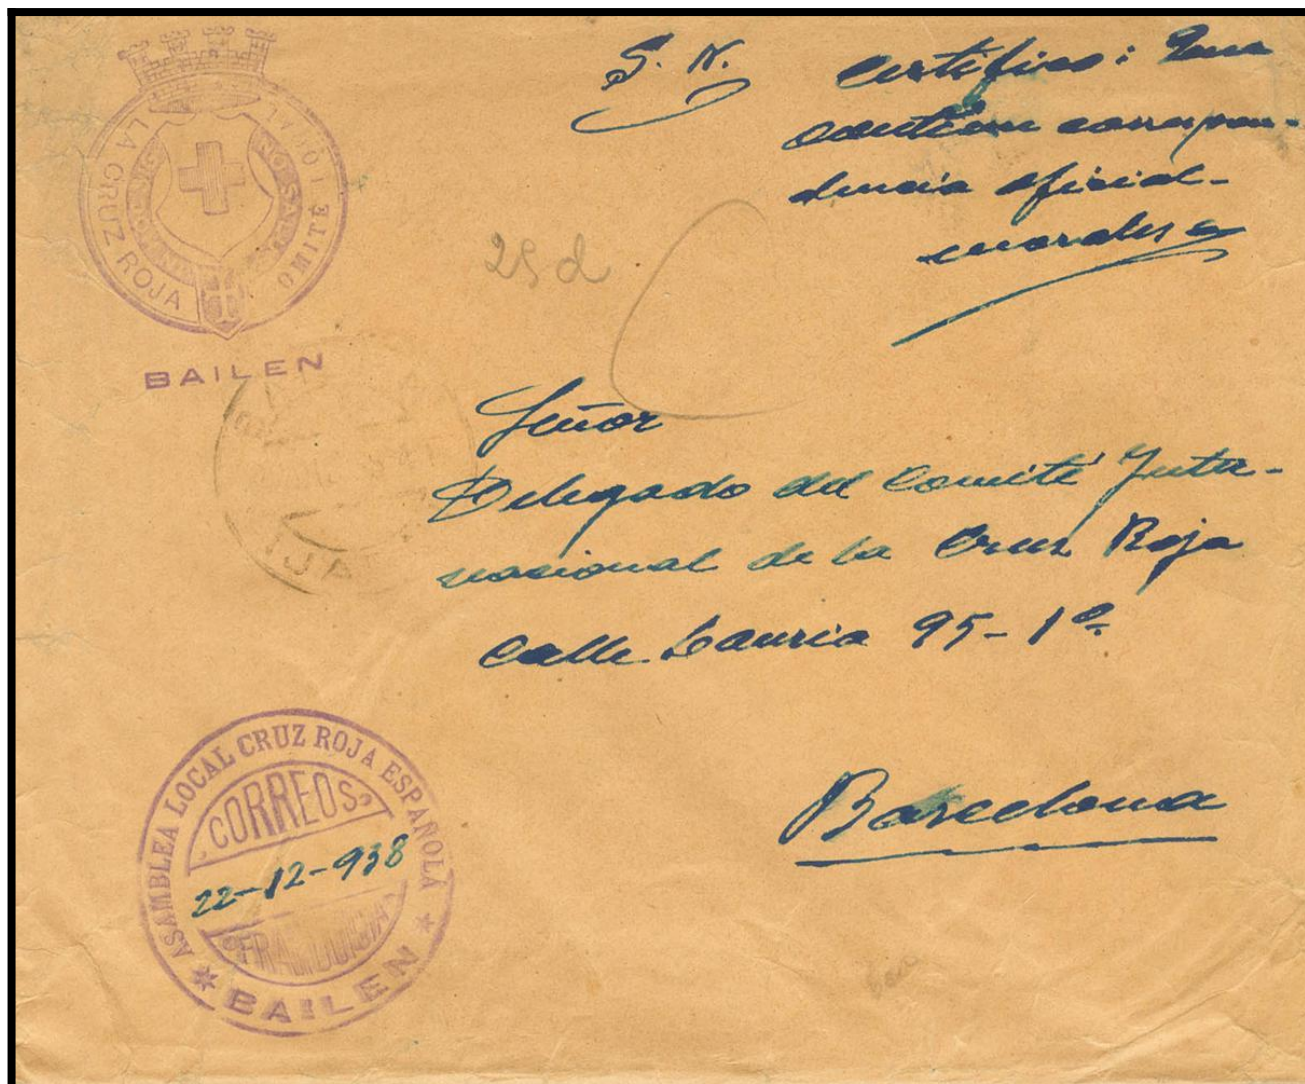 COMITÉ LOCAL
LA CRUZ ROJA
BAILEN
S. N.
Certifico: Que
contiene correspon-
dencia oficial-
Morales
25 d
Señor
Delegado del Comité Inter-
nacional de la Cruz Roja
Calle Lauria 95-1º
Barcelona
ASAMBLEA LOCAL CRUZ ROJA ESPAÑOLA
CORREOS
22-12-938
FRANQUICIA
BAILEN